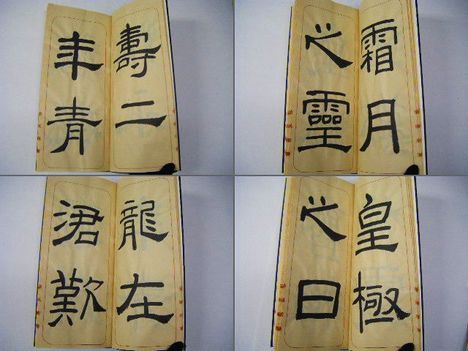 壽二
年青
龍在
涒歎
霜月
之靈
皇極
之日